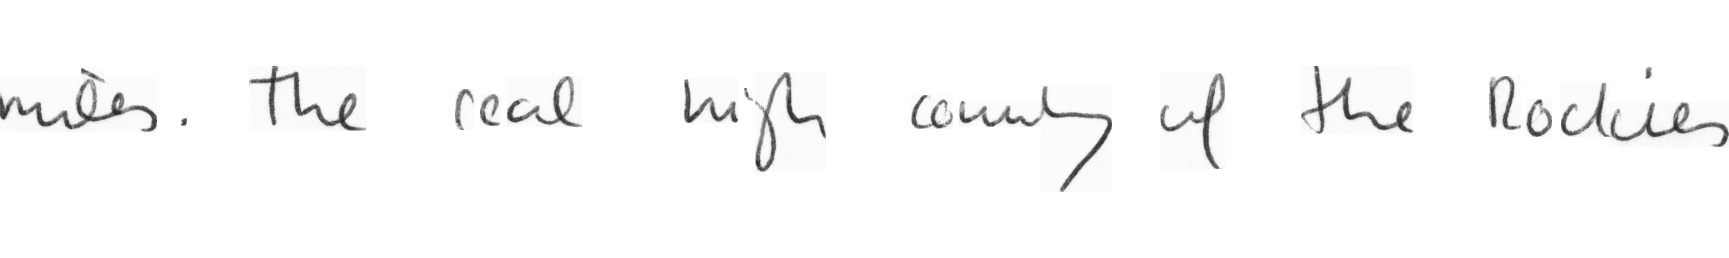 miles. The real high country of the Rockies